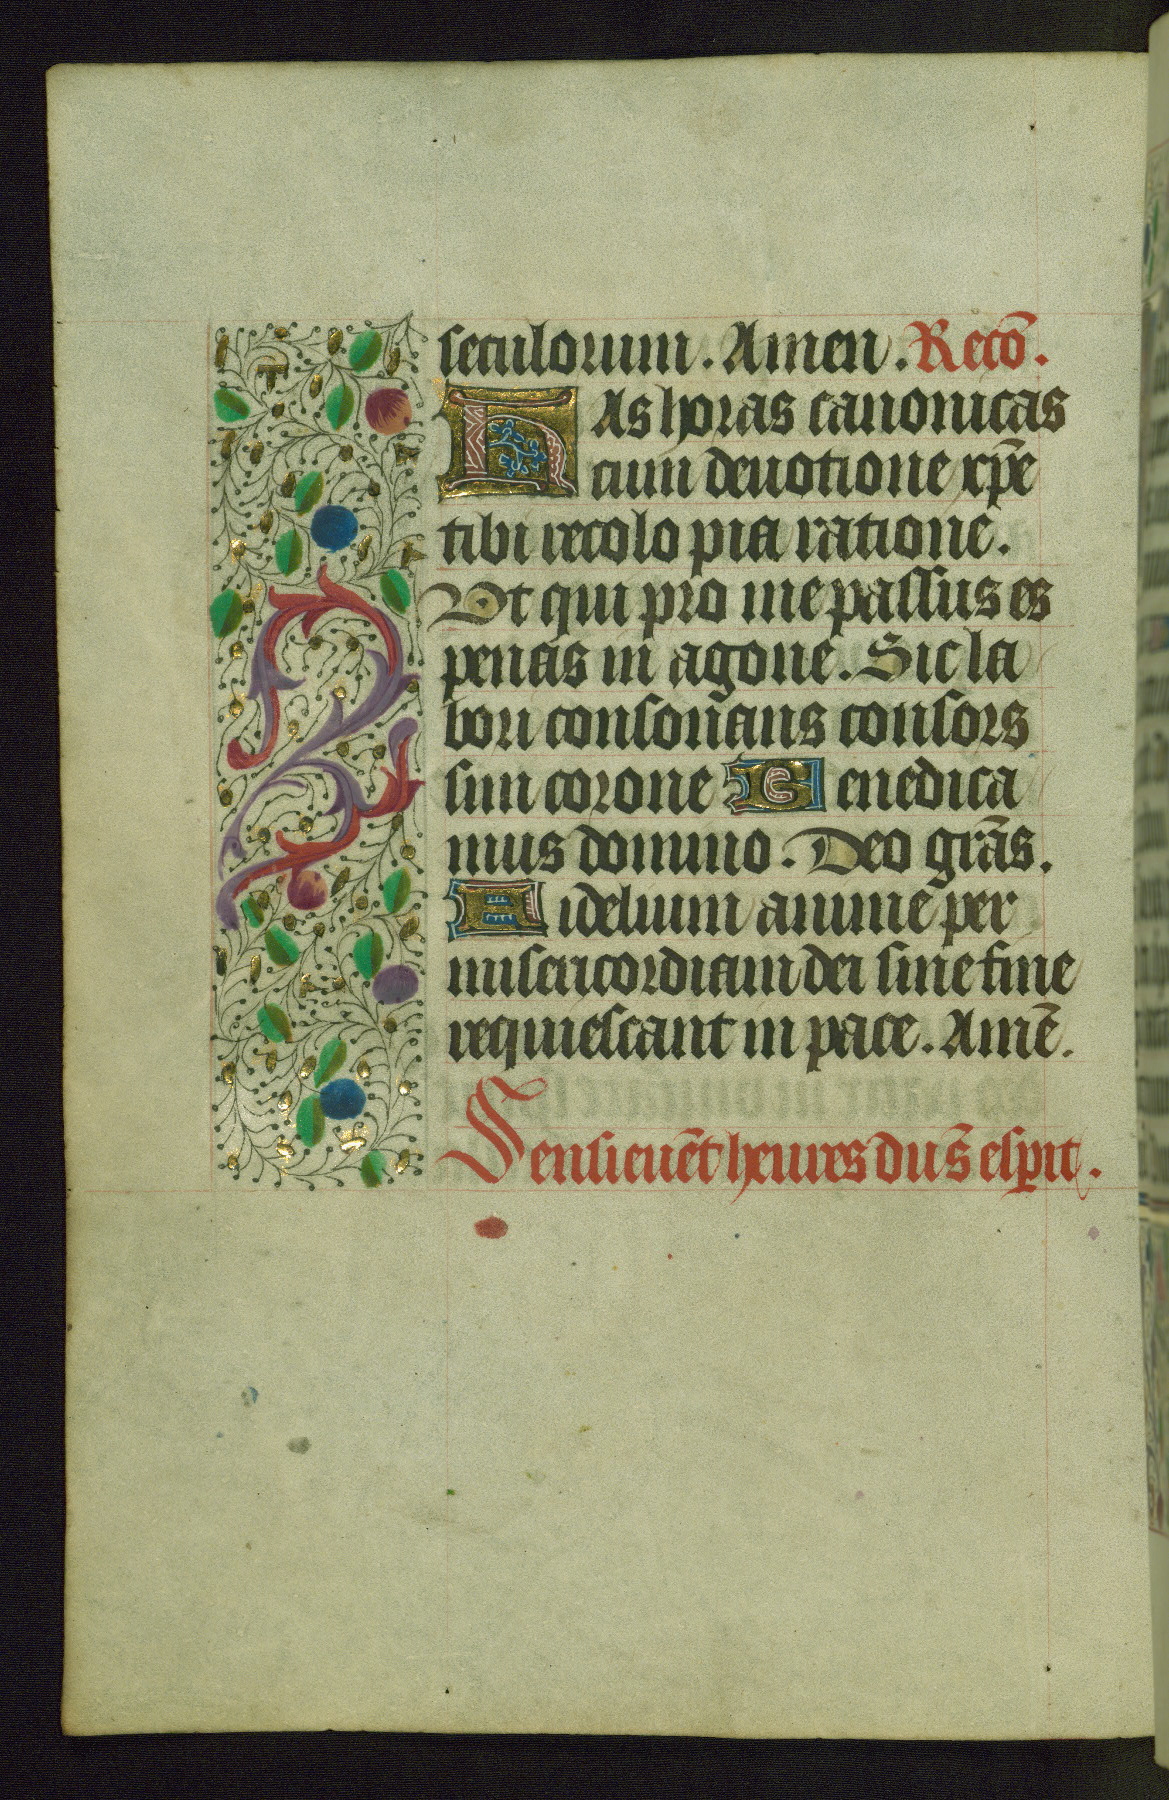 seculorum. Amen. Recō.
HAs horas canonicas
cum deuotione xp̄e
tibi recolo pia ratione.
Vt qui pro me passus es
penas in agone. Sic la
bori consonans consors
sim corone Benedica
mus domino. Deo grās.
Fidelium anime per
misericordiam dei sine fine
requiescant in pace. Amē.
Sensieuēt heures du s̄ esp̄it.